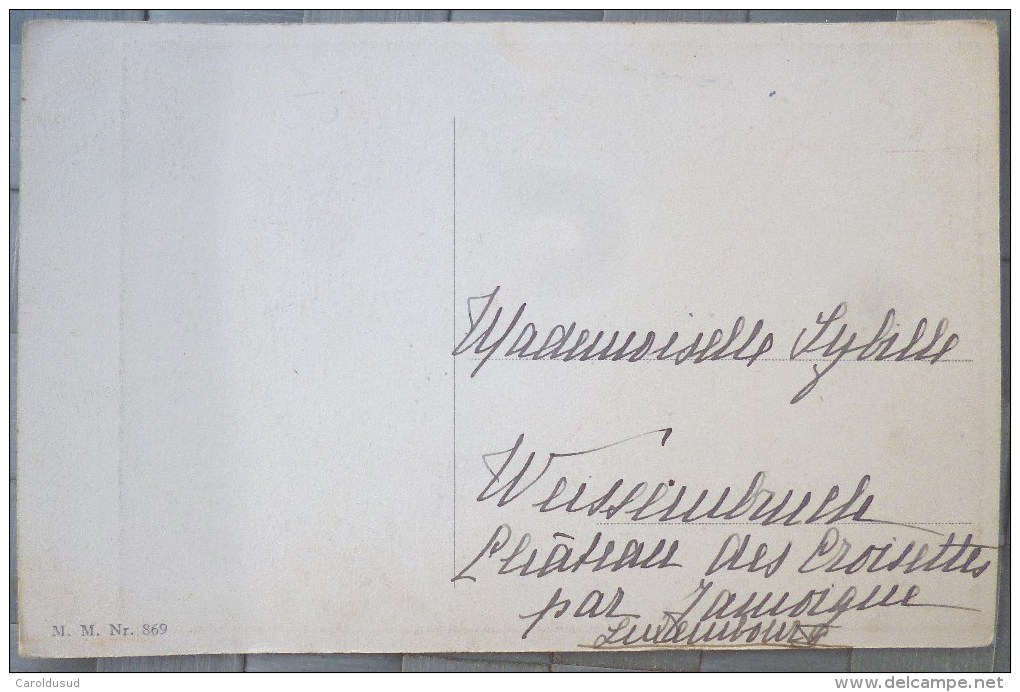 Mademoiselle Sybille
Weissembruch
Château des Croisettes
par Jamoigne
Luxembourg
M. M. Nr. 869
Caroldusud
© delcampe.net